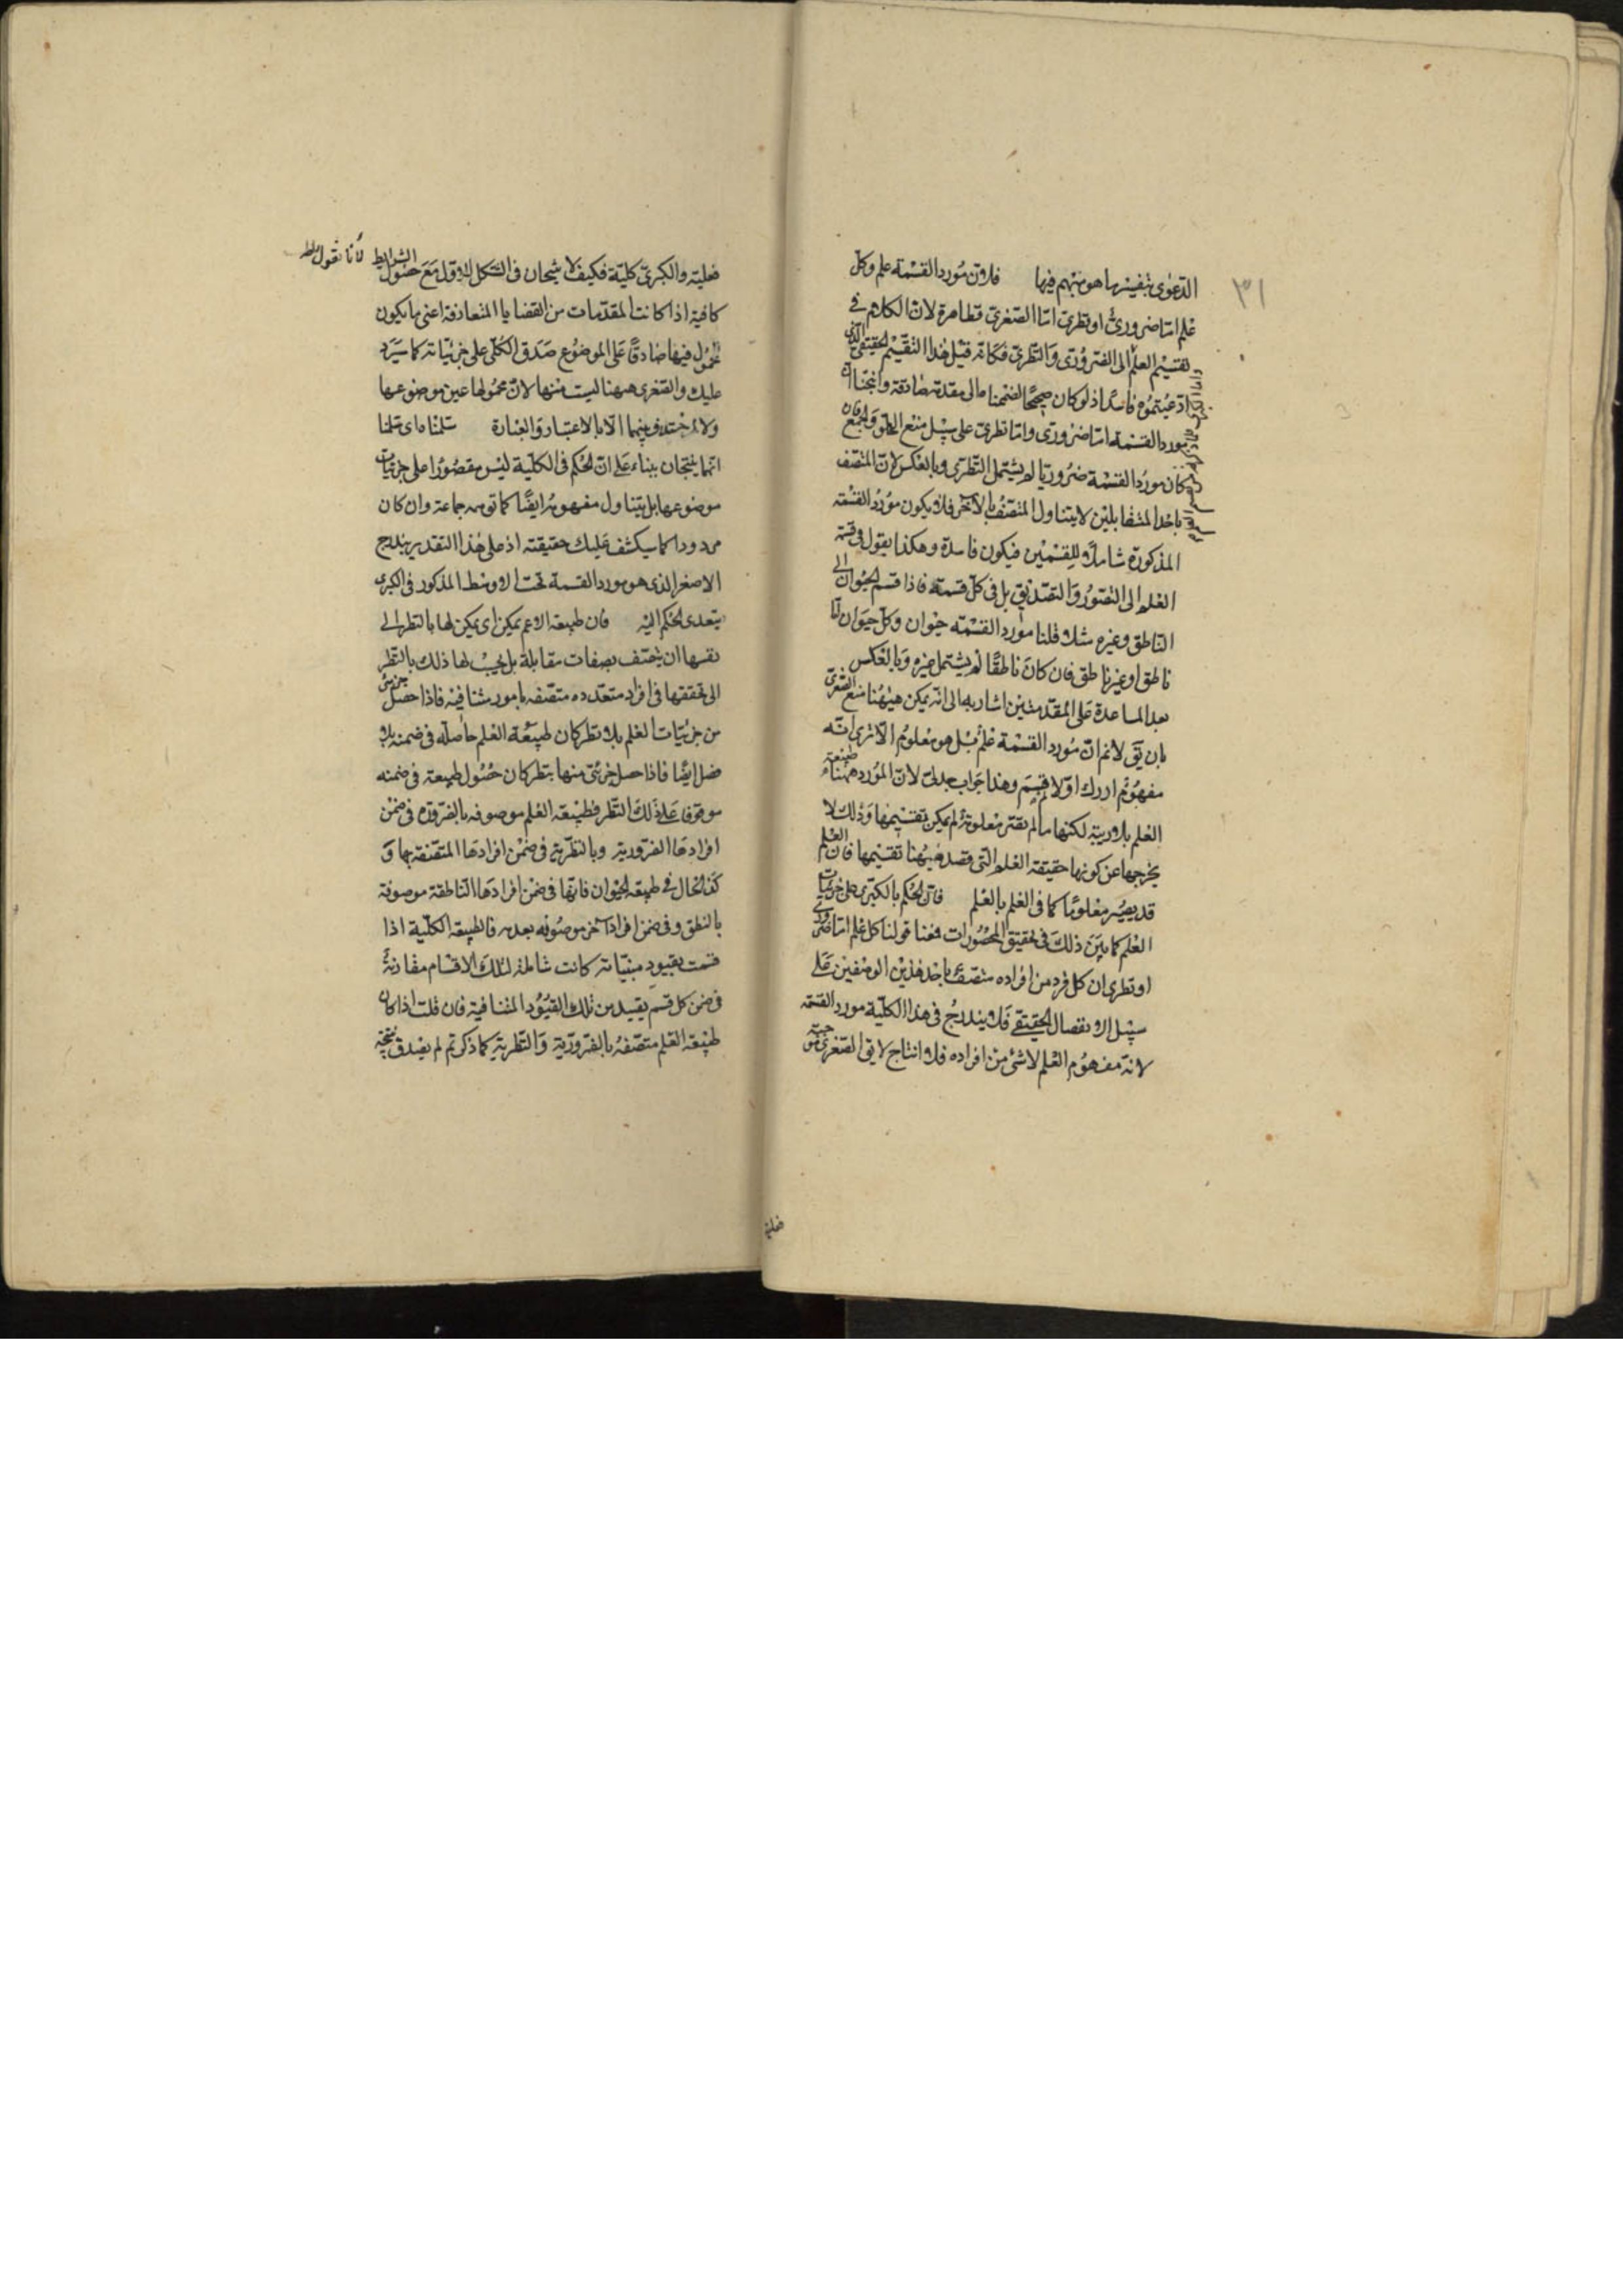 ٣١
الدعوى بتفسيرها هو منهم فيها فلان مورد القسمة علم وكل
علم اما ضروري او نظري اما الصغرى فظاهرة لان الكلام في
تقسيم العلم الى الضروري والنظري فكانه قيل هذا التقسيم الحقيقي الذي
ادعيتموه فاسد اذ لو كان صحيحا لضممنا الى مقدمة صادقة وانتجنا ان
مورد القسمة اما ضروري واما نظري على سبيل منع الخلو والجمع فان
كان مورد القسمة ضروريا لم يشتمل النظري وبالعكس لان المتصف
باحد المتقابلين لا يتناول المتصف بالآخر فلا يكون مورد القسمة
المذكورة شاملا للقسمين فيكون فاسدة وهكذا يقول في قسمة
العلم الى التصور والتصديق بل في كل قسمة فاذا قسم الحيوان الى
الناطق وغيره مثلا قلنا مورد القسمة حيوان وكل حيوان اما
ناطق او غير ناطق فان كان ناطقا لم يشتمل غيره وبالعكس
بعد المساعدة على المقدمتين اشار به الى انه يمكن ههنا منع الصغرى
بان يق لانم ان مورد القسمة علم بل هو معلوم الا ترى انه
مفهوم ادرك اولا ثم قسم وهذا جواب جدلي لان المورد ههنا طبيعة
العلم بلا ريبة لكنها ما لم يصر معلومة لم يمكن تقسيمها وذلك لا
يخرجها عن كونها حقيقة العلم التي قصد ههنا تقسيمها فان العلم
قد يصير معلوما كما في العلم بالعلم فان الحكم بالكبرى على جزئيات
العلم كما بين ذلك في تحقيق المحصورات فمعنا قولنا كل علم اما ضروري
او نظري ان كل فرد من افراده متصف باحد هذين الوصفين على
سبيل الانفصال الحقيقي فلا يندرج في هذا الكلية مورد القسمة
لانه مفهوم العلم لا شئ من افراده فلا انتاج لا يق الصغرى موجبة
فعلية
فعلية والكبرى كلية فكيف لا ينتجان في الشكل الاول مع حصول الشرايط لانا نقول
كافية اذا كانت المقدمات من القضايا المتعارفة اعني ما يكون
المحمول فيها صادقا على الموضوع صدق الكلي على جزئياته كما سيرد
عليك والصغرى ههنا ليست منها لان محمولها عين موضوعها
ولا اختلاف بينهما الا بالاعتبار والعبارة سلمنا اي سلمنا
انهما ينتجان بناء على ان الحكم في الكلية ليس مقصورا على جزئيات
موضوعها بل يتناول مفهومه ايضا كما توهمه جماعة وان كان
مردودا كما سيكشف عليك حقيقته اذ على هذا التقدير يندرج
الاصغر الذي هو مورد القسمة تحت الاوسط المذكور في الكبرى
يتعدى الحكم اليه فان طبيعة الاعم يمكن اي يمكن لها بالنظر الى
نفسها ان يتصف بصفات متقابلة بل يجب لها ذلك بالنظر
الى تحققها في افراد متعددة متصفة بامور متنافية فاذا حصل جزئي
من جزئيات العلم بلا نظر كان طبيعة العلم حاصلة في ضمنه بلا
فصل ايضا فاذا حصل جزئي منها بنظر كان حصول طبيعته في ضمنه
موقوفا على ذلك النظر فطبيعة العلم موصوفة بالضرورة في ضمن
افرادها الضرورية وبالنظرية في ضمن افرادها المتصفة بها و
كذا الحال في طبيعة الحيوان فانها في ضمن افرادها الناطقة موصوفة
بالنطق وفي ضمن افراد آخر موصوفة بعدمه فالطبيعة الكلية اذا
قسمت بقيود متباينة كانت شاملة لتلك الاقسام مقارنة
في ضمن كل قسم بقيد من تلك القيود المتنافية فان قلت اذا كان
طبيعة العلم متصفة بالضرورية والنظرية كما ذكرتم لم يصدق نتيجة